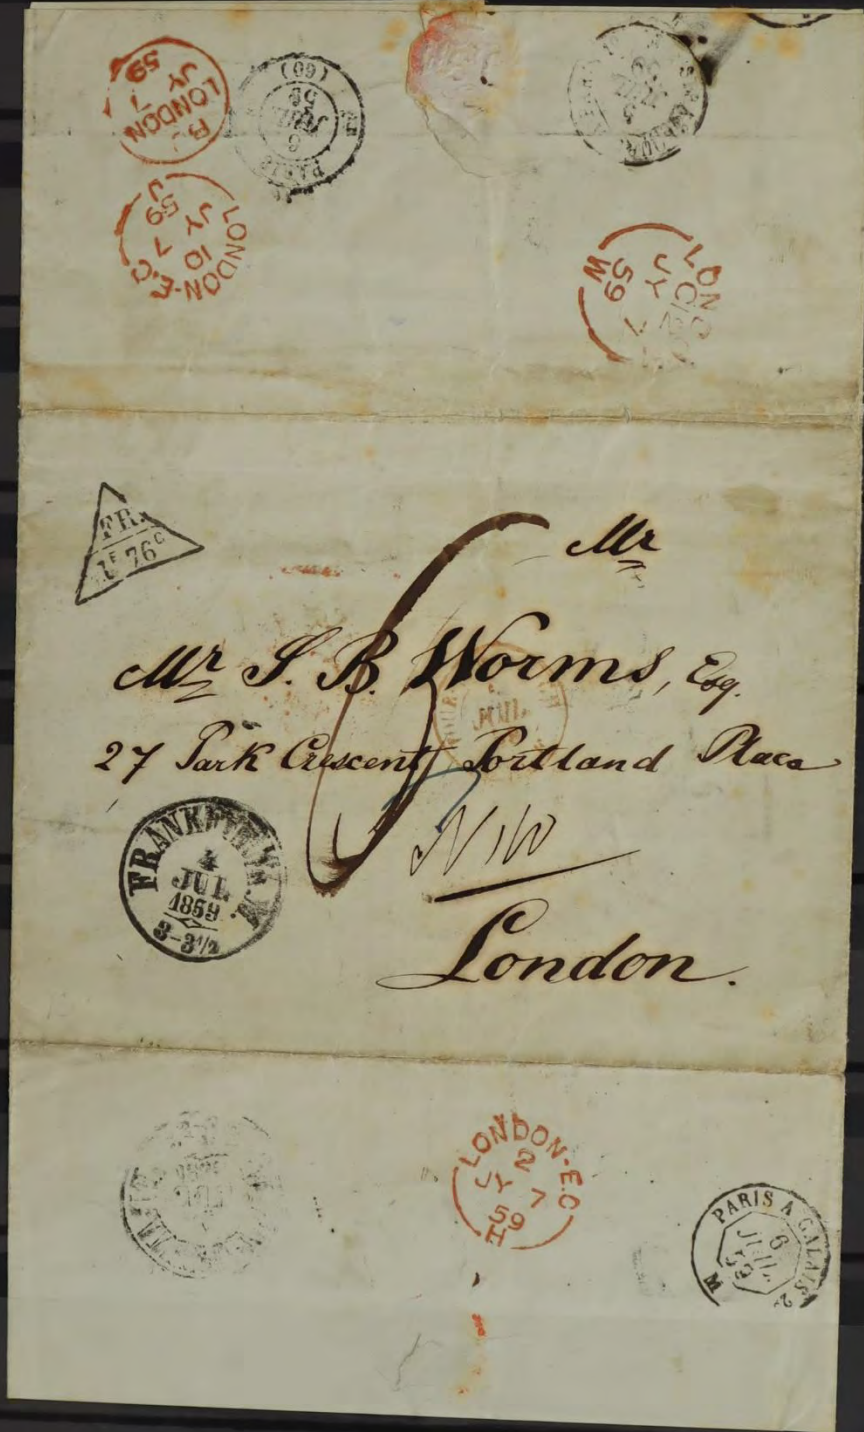 B.J
LONDON
7
JY
59
PARIS
6
JUIL
59
(60)
5
LONDON-E.C
10
7
JY
59
J
LOND
7
JY
59
W
FR.
1F 76c
Mr
Mr S. B. Worms, Esq.
27 Park Crescent Portland Place
JUIL
N W
London.
FRANKFURT A. M.
4
JUL
1859
3-3½
LONDON-E.C
2
JY 7
59
H
PARIS A CALAIS 2°
6
JUIL
59
M